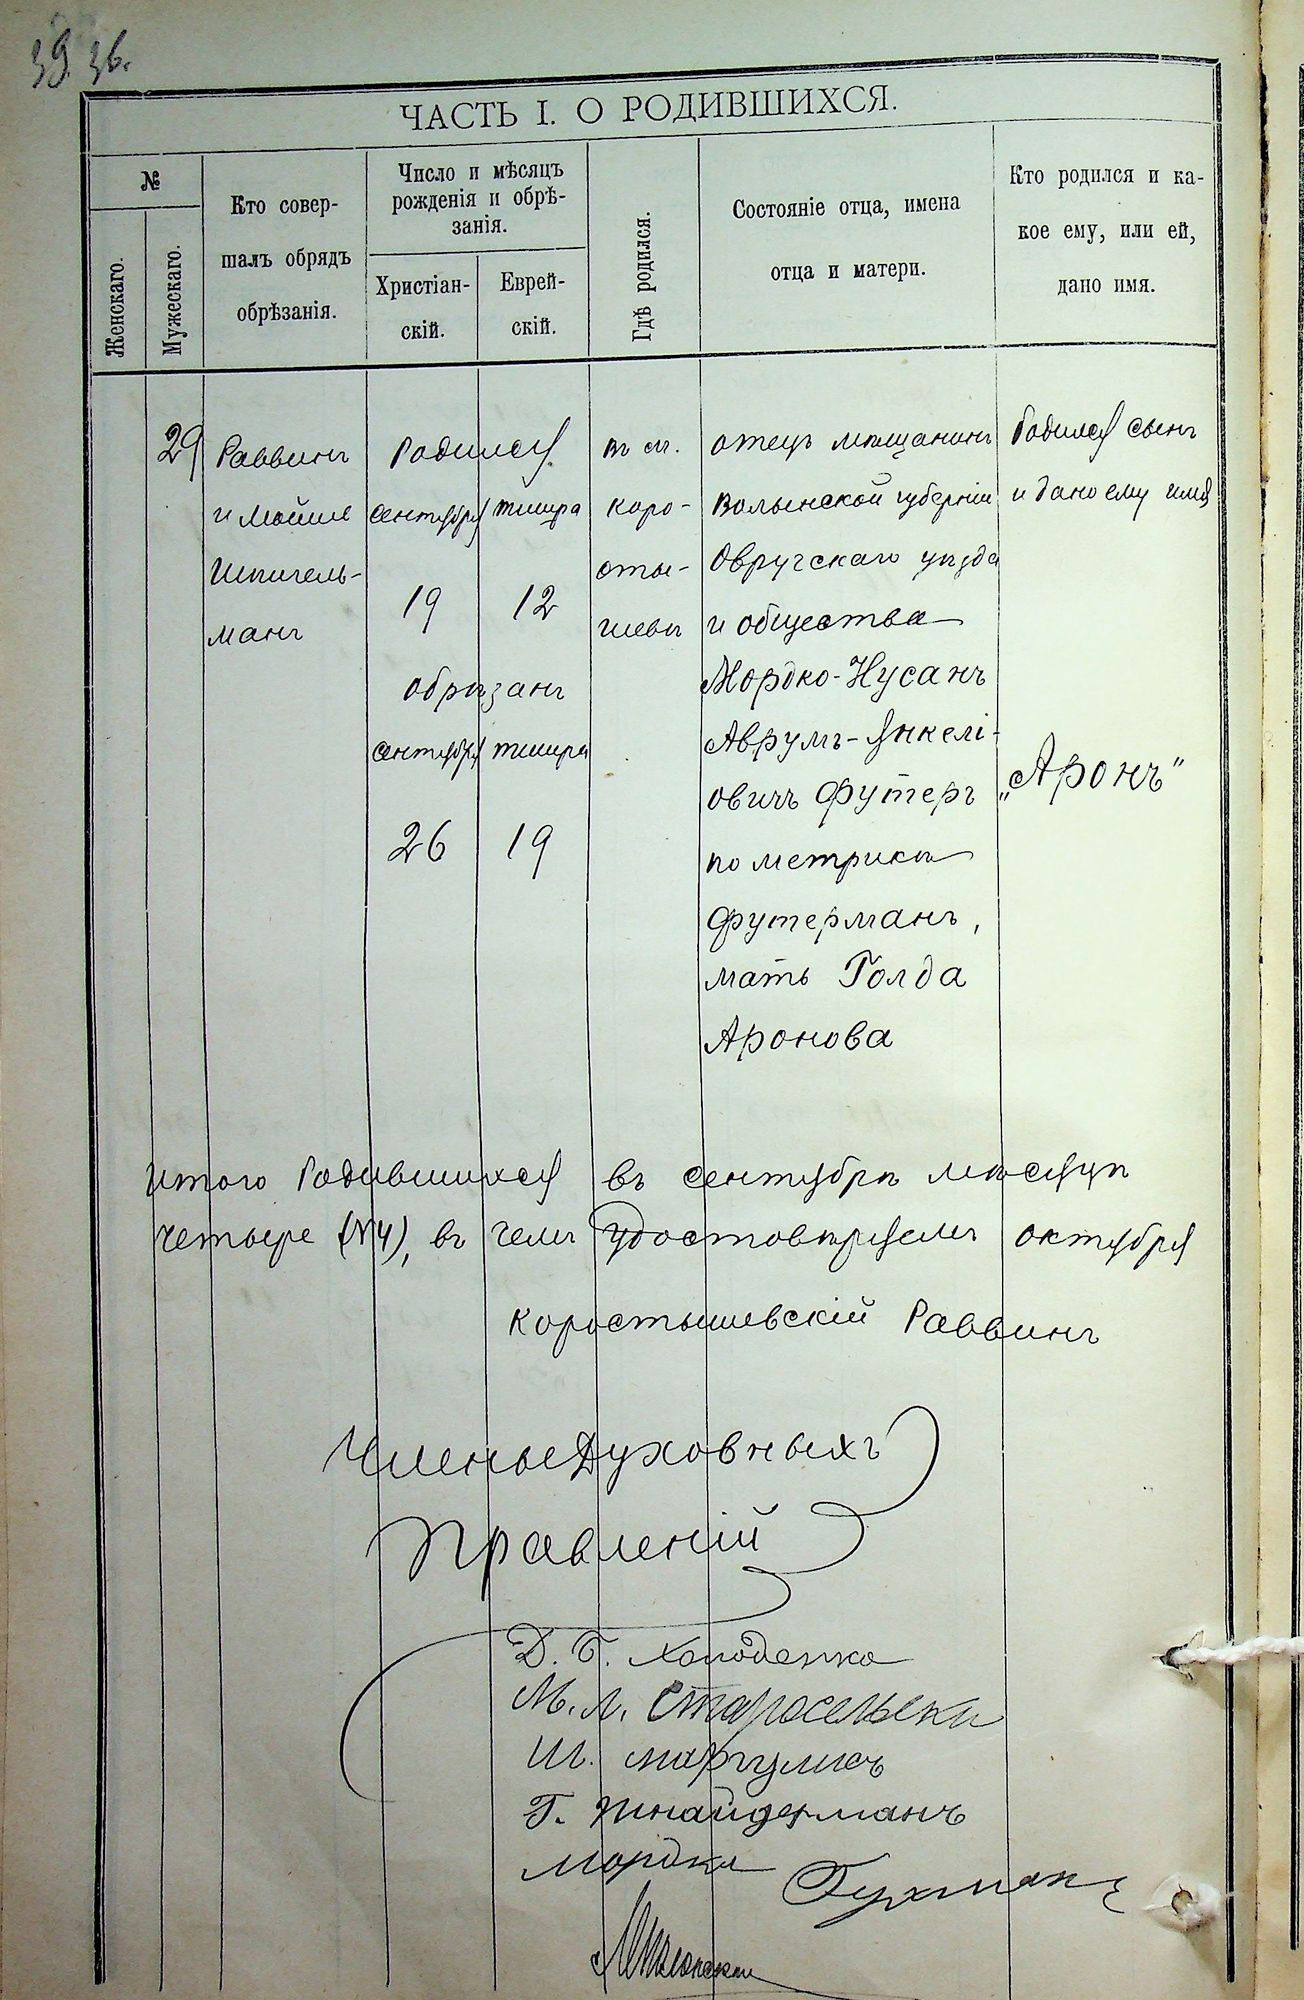 39. 36.
ЧАСТЬ I. О РОДИВШИХСЯ.
№
Женскаго.
Мужескаго.
Кто совер-
шалъ обрядъ
обрѣзанія.
Число и мѣсяцъ
рожденія и обрѣ-
занія.
Христіан-
скій.
Еврей-
скій.
Гдѣ родился.
Состояніе отца, имена
отца и матери.
Кто родился и ка-
кое ему, или ей,
дано имя.
29
Раввинъ
и Мойше
Шпигель-
манъ
Родился
сентября тишра
19 12
обрѣзанъ
сентября тишра
26 19
въ м.
Коро-
сты-
шевѣ
отецъ мѣщанинъ
Волынской губерніи
Овручскаго уѣзда
и общества
Мордко-Нусанъ
Аврумъ-Янкелі-
овичъ Футеръ
по метрикѣ
Футерманъ,
мать Голда
Аронова
Родился сынъ
и дано ему имя
„Аронъ"
Итого Родившихся въ сентябрѣ мѣсяцѣ
четыре (№4), въ чемъ удостовѣряемъ октября
Коростышевскій Раввинъ
Члены Духовныхъ
Правленій
Д. Б. Холоденко
М. Л. Старосельски
Ш. Маргулисъ
Г. Шнайдерманъ
Мордко Гухманъ